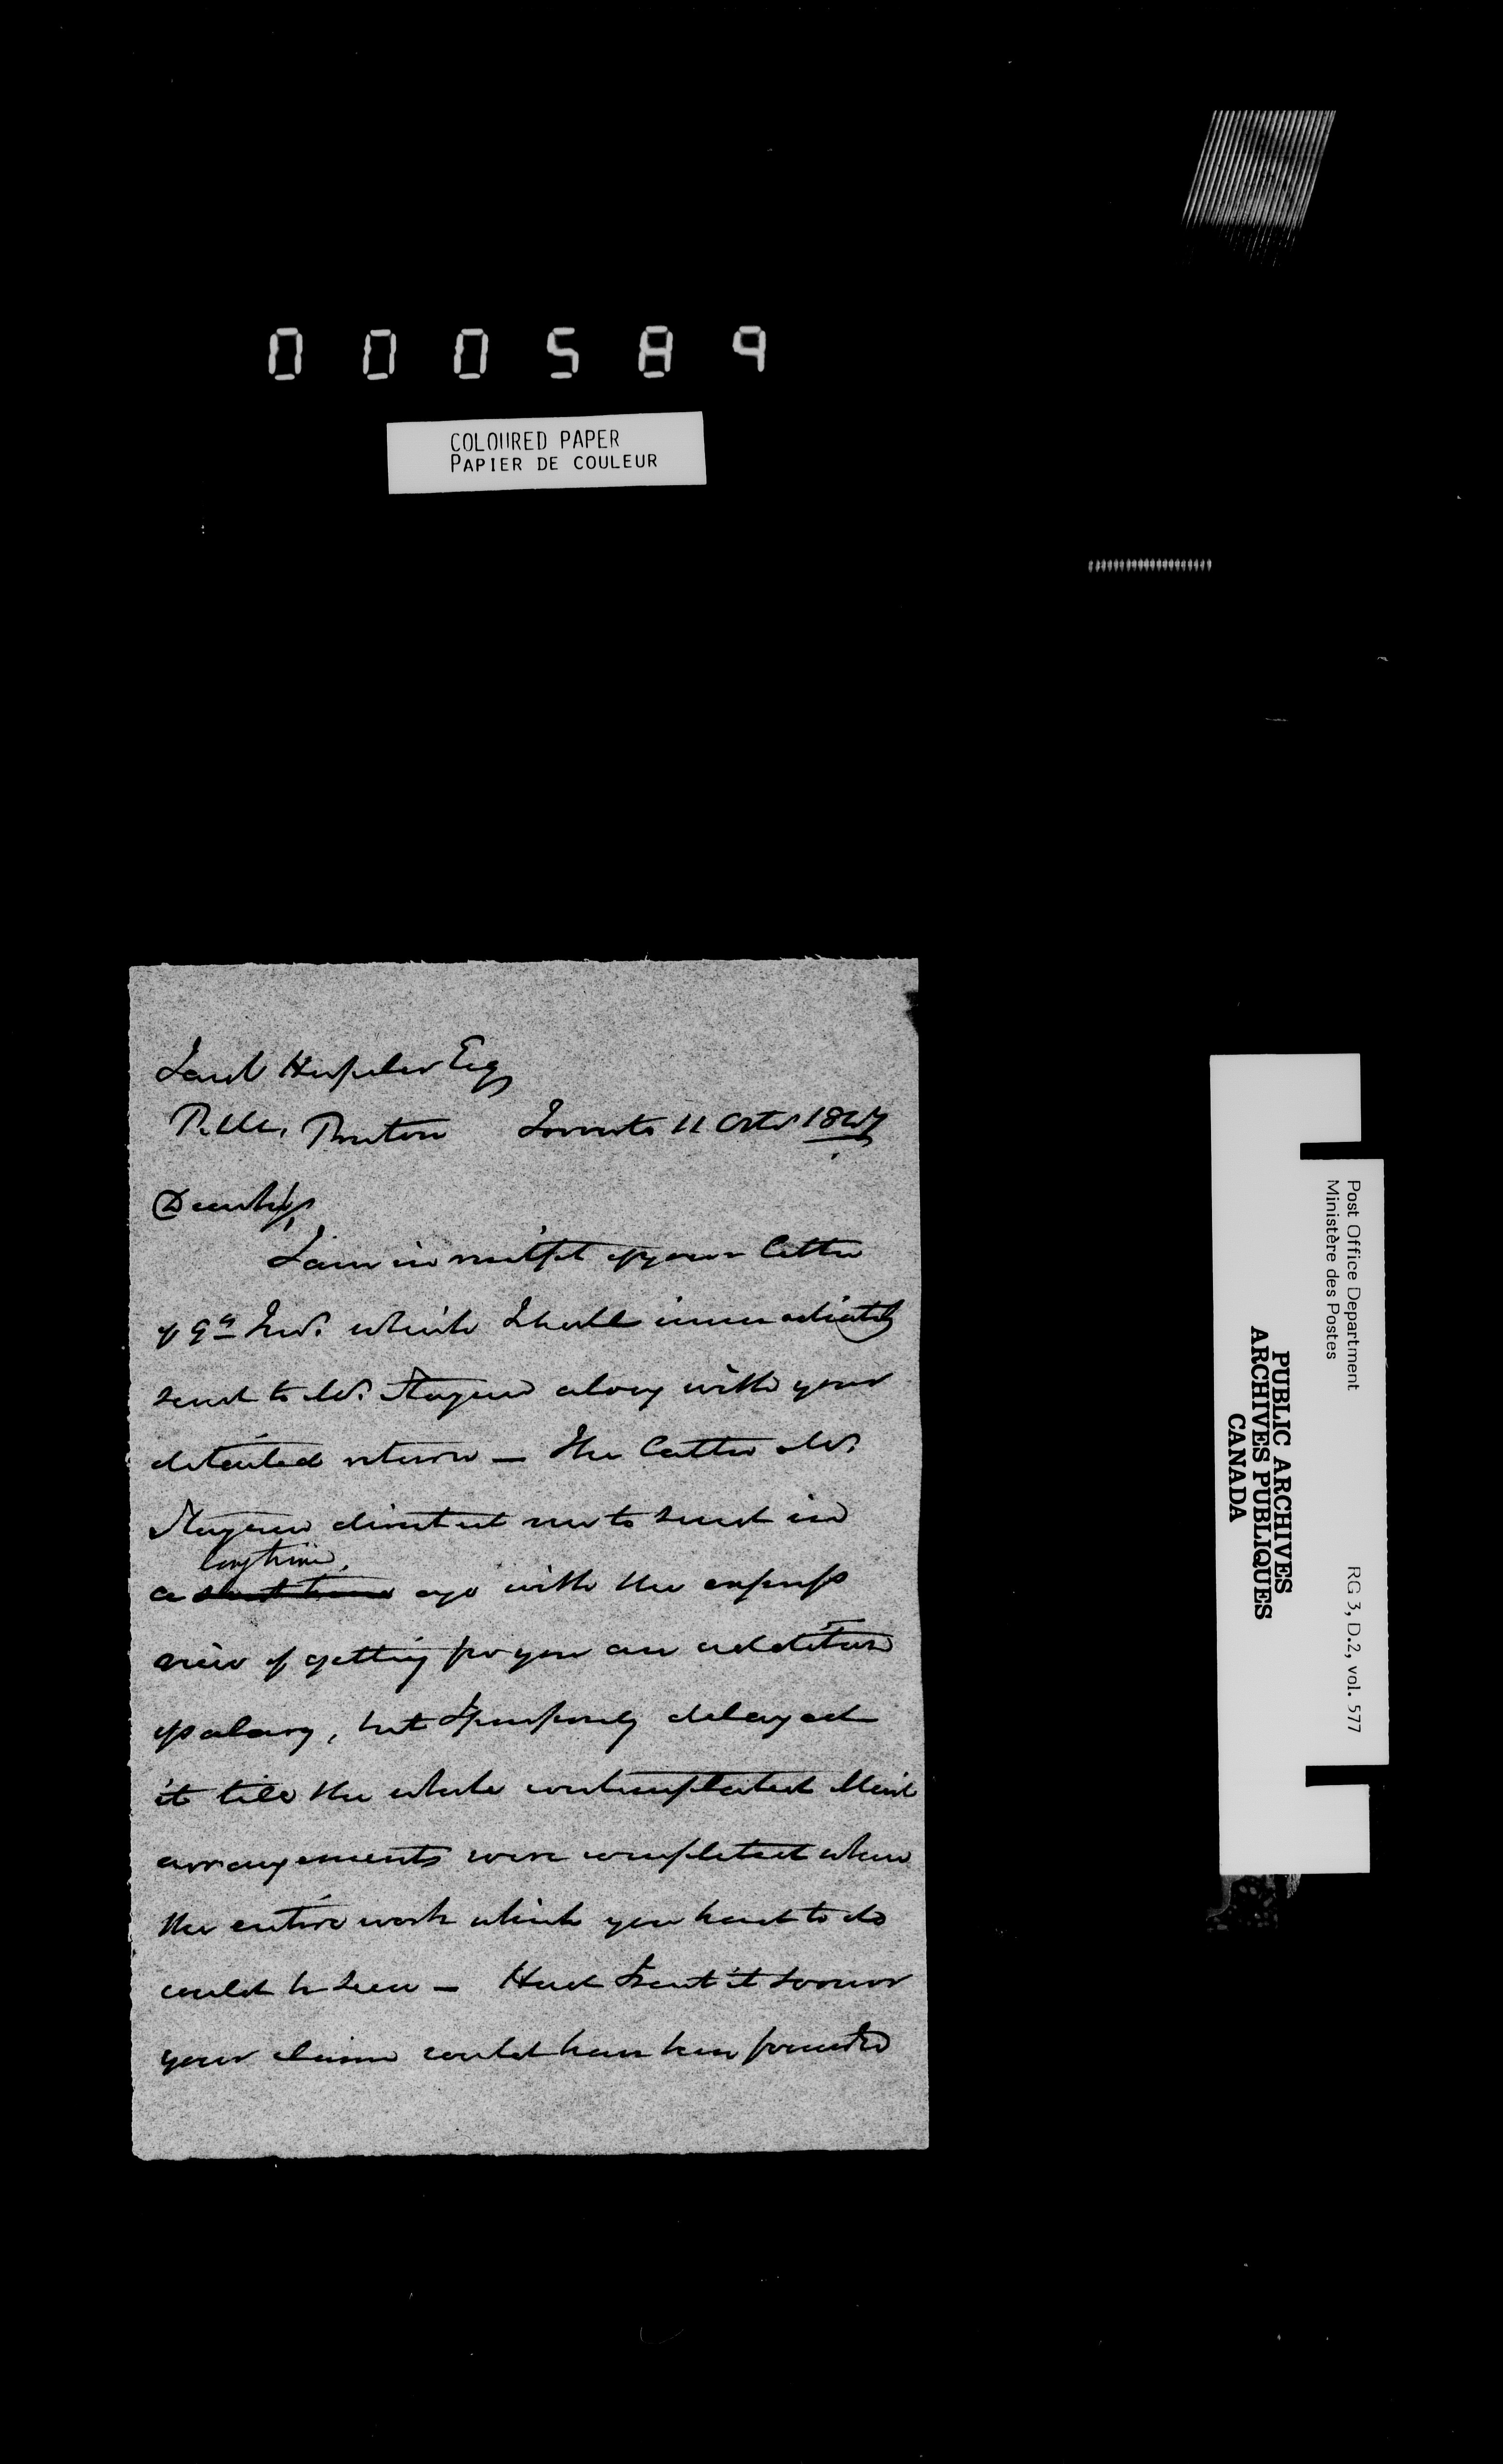 000589
COLOURED PAPER
PAPIER DE COULEUR
Esq
P.M. Preston Toronto 11 Octr 1847
Dear Sir,
I am in receipt of your letter
of 9th Inst. which I shall immediately
send to Mr. Stayner along with your
detailed return — The latter Mr.
Stayner directed me to send in
long time,
a short time ago with the express
view of getting for you an addition
of salary, but I purposely delayed
it till the whole contemplated Mail
arrangements were completed when
the entire work which you had to do
could be seen — Had I sent it sooner
your claim could have been founded
Post Office Department
Ministère des Postes
RG 3, D.2, vol. 577
PUBLIC ARCHIVES
ARCHIVES PUBLIQUES
CANADA